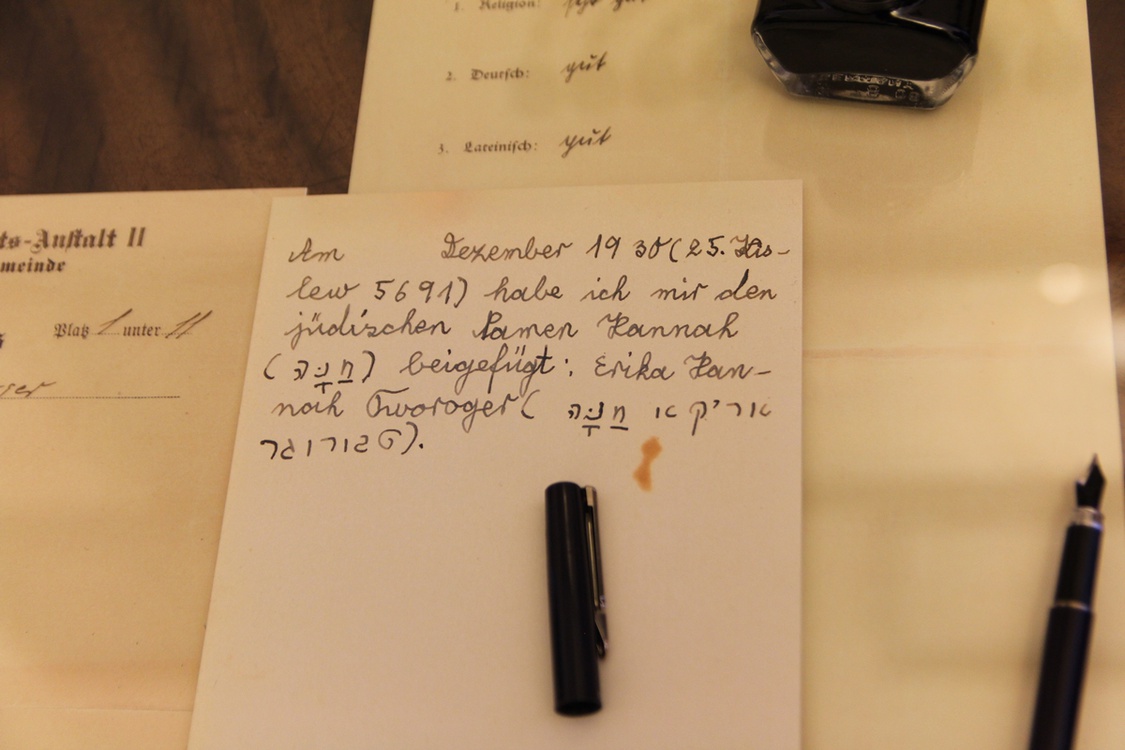 1. Religion: sehr gut
2. Deutsch: gut
3. Lateinisch: gut
ts-Anstalt II
meinde
Platz 1 unter 11
Am Dezember 1930 (25. Kis-
lew 5691) habe ich mir den
jüdischen Namen Hannah
(חַנָּה) beigefügt: Erika Han-
nah Tworoger ( אריקא חַנָּה
טבורוגר).